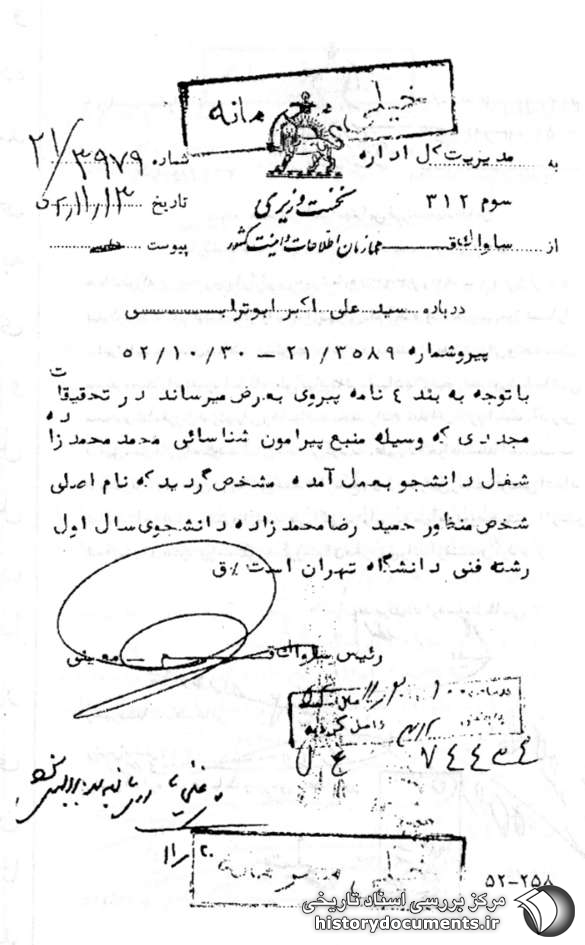 خیلی محرمانه
به مدیریت کل اداره
سوم ۳۱۲
از ساواک ق
نخست وزیری
سازمان اطلاعات و امنیت کشور
شماره ۲۱/۳۹۷۹
تاریخ ۵۲/۱۱/۱۳
پیوست
درباره سید علی اکبر ابوترابی
پیرو شماره ۲۱/۳۵۸۹ – ۵۲/۱۰/۳۰
با توجه به بند ٤ نامه پیروی بعرض میرساند در تحقیقات
مجددی که وسیله منبع پیرامون شناسائی محمد محمد زاده
شغل دانشجو بعمل آمده مشخص گردید که نام اصلی
شخص منظور حمید رضا محمد زاده دانشجوی سال اول
رشته فنی دانشگاه تهران است ٪ ق
رئیس ساواک ق – معینی
خیلی محرمانه
۲۰/۱۱
۵۲-۲۵۸
مرکز بررسی اسناد تاریخی
historydocuments.ir